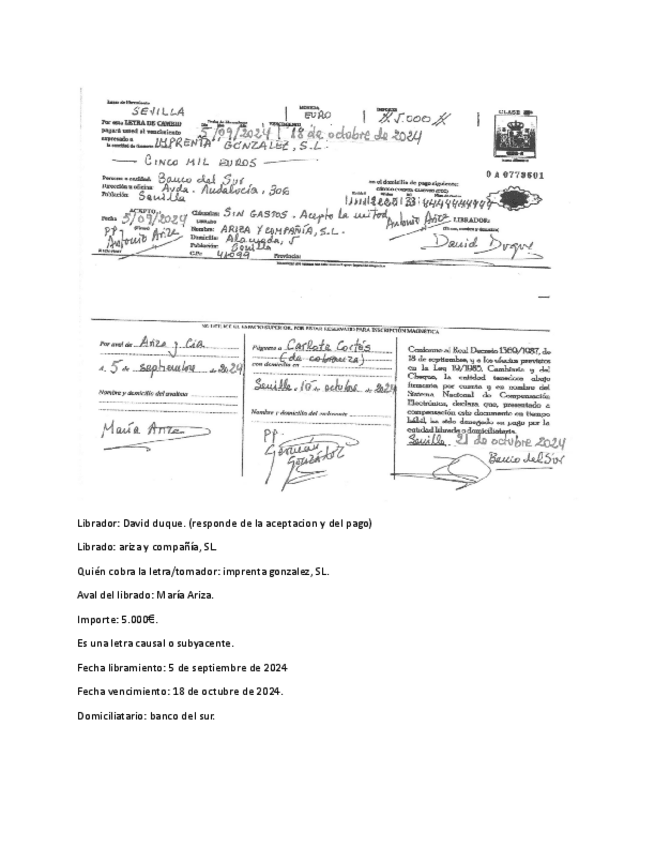 Lugar de libramiento
SEVILLA
MONEDA
EURO
IMPORTE
#5.000#
CLASE 8ª
Por esta LETRA DE CAMBIO
pagará usted al vencimiento
expresado a
5/09/2024 18 de octubre de 2024
IMPRENTA GONZALEZ, S.L.
CINCO MIL EUROS
0 A 0773601
Persona o entidad: Banco del Sur
en el domicilio de pago siguiente:
Dirección u oficina: Avda. Andalucía, 306
Población: Sevilla
ACEPTO
Fecha 5/09/2024
PP
Antonio Ariza
Cláusulas: SIN GASTOS. Acepto la mitad Antonio Ariza
LIBRADOR:
Nombre: ARIZA Y COMPAÑÍA, S.L.
Domicilio: Alameda, 5
Población: Sevilla
C.P: 41099
Provincia:
David Duque
NO UTILICE EL ESPACIO SUPERIOR, POR ESTAR RESERVADO PARA INSCRIPCIÓN MAGNÉTICA
Por aval de Ariza y Cía
a 5 de septiembre de 2024
Nombre y domicilio del avalista
María Ariza
Páguese a Carlota Cortés
(de cobranza)
con domicilio en
Sevilla, 10 de octubre de 2024
Nombre y domicilio del endosante
PP
Germán
González
Conforme al Real Decreto 1369/1987, de
18 de septiembre, y a los efectos previstos
en la Ley 19/1985, Cambiaria y del
Cheque, la entidad tenedora abajo
firmante por cuenta y en nombre del
Sistema Nacional de Compensación
Electrónica, declara que, presentado a
compensación este documento en tiempo
hábil, ha sido denegado su pago por la
entidad librada o domiciliataria.
Sevilla, 21 de octubre 2024
Banco del Sur
Librador: David duque. (responde de la aceptacion y del pago)
Librado: ariza y compañía, SL.
Quién cobra la letra/tomador: imprenta gonzalez, SL.
Aval del librado: María Ariza.
Importe: 5.000€.
Es una letra causal o subyacente.
Fecha libramiento: 5 de septiembre de 2024
Fecha vencimiento: 18 de octubre de 2024.
Domiciliatario: banco del sur.